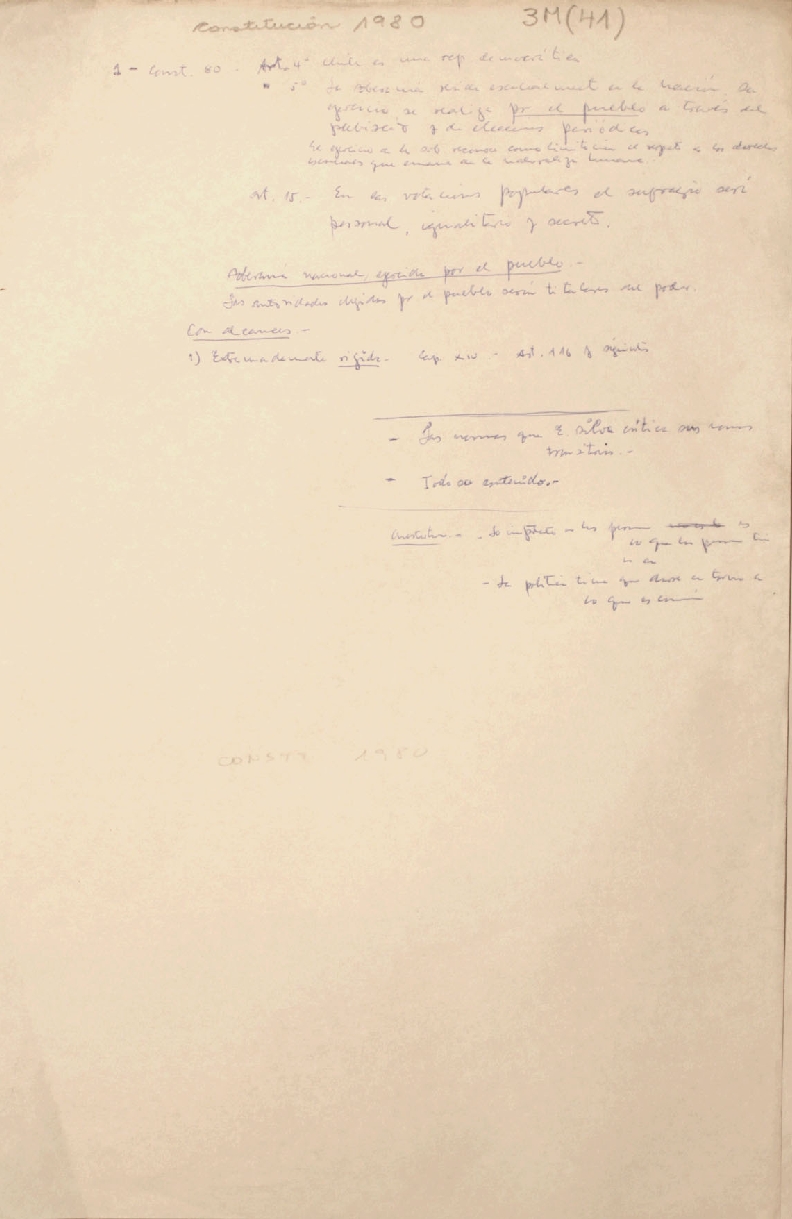 Constitución 1980 3M(41)
1 - Const. 80 - Art. 4° Chile es una rep. democrática
" 5° La soberanía reside esencialmente en la Nación. Su
ejercicio se realiza por el pueblo a través del
plebiscito y de elecciones periódicas
El ejercicio de la sob. reconoce como limitación el respeto a los derechos
esenciales que emanan de la naturaleza humana.
Art. 15.- En las votaciones populares el sufragio será
personal, igualitario y secreto.
Soberanía nacional, ejercida por el pueblo -
Las autoridades elegidas por el pueblo serán titulares del poder.
Con alcances.-
1) Extremadamente rígida. Cap. XIV - Art. 116 y siguientes
- Las normas que E. Silva critica son normas
transitorias.-
- Todo su contenido.-
- Lo que los
lo que
- La política tiene que en torno a
lo que es común
CONST. 1980